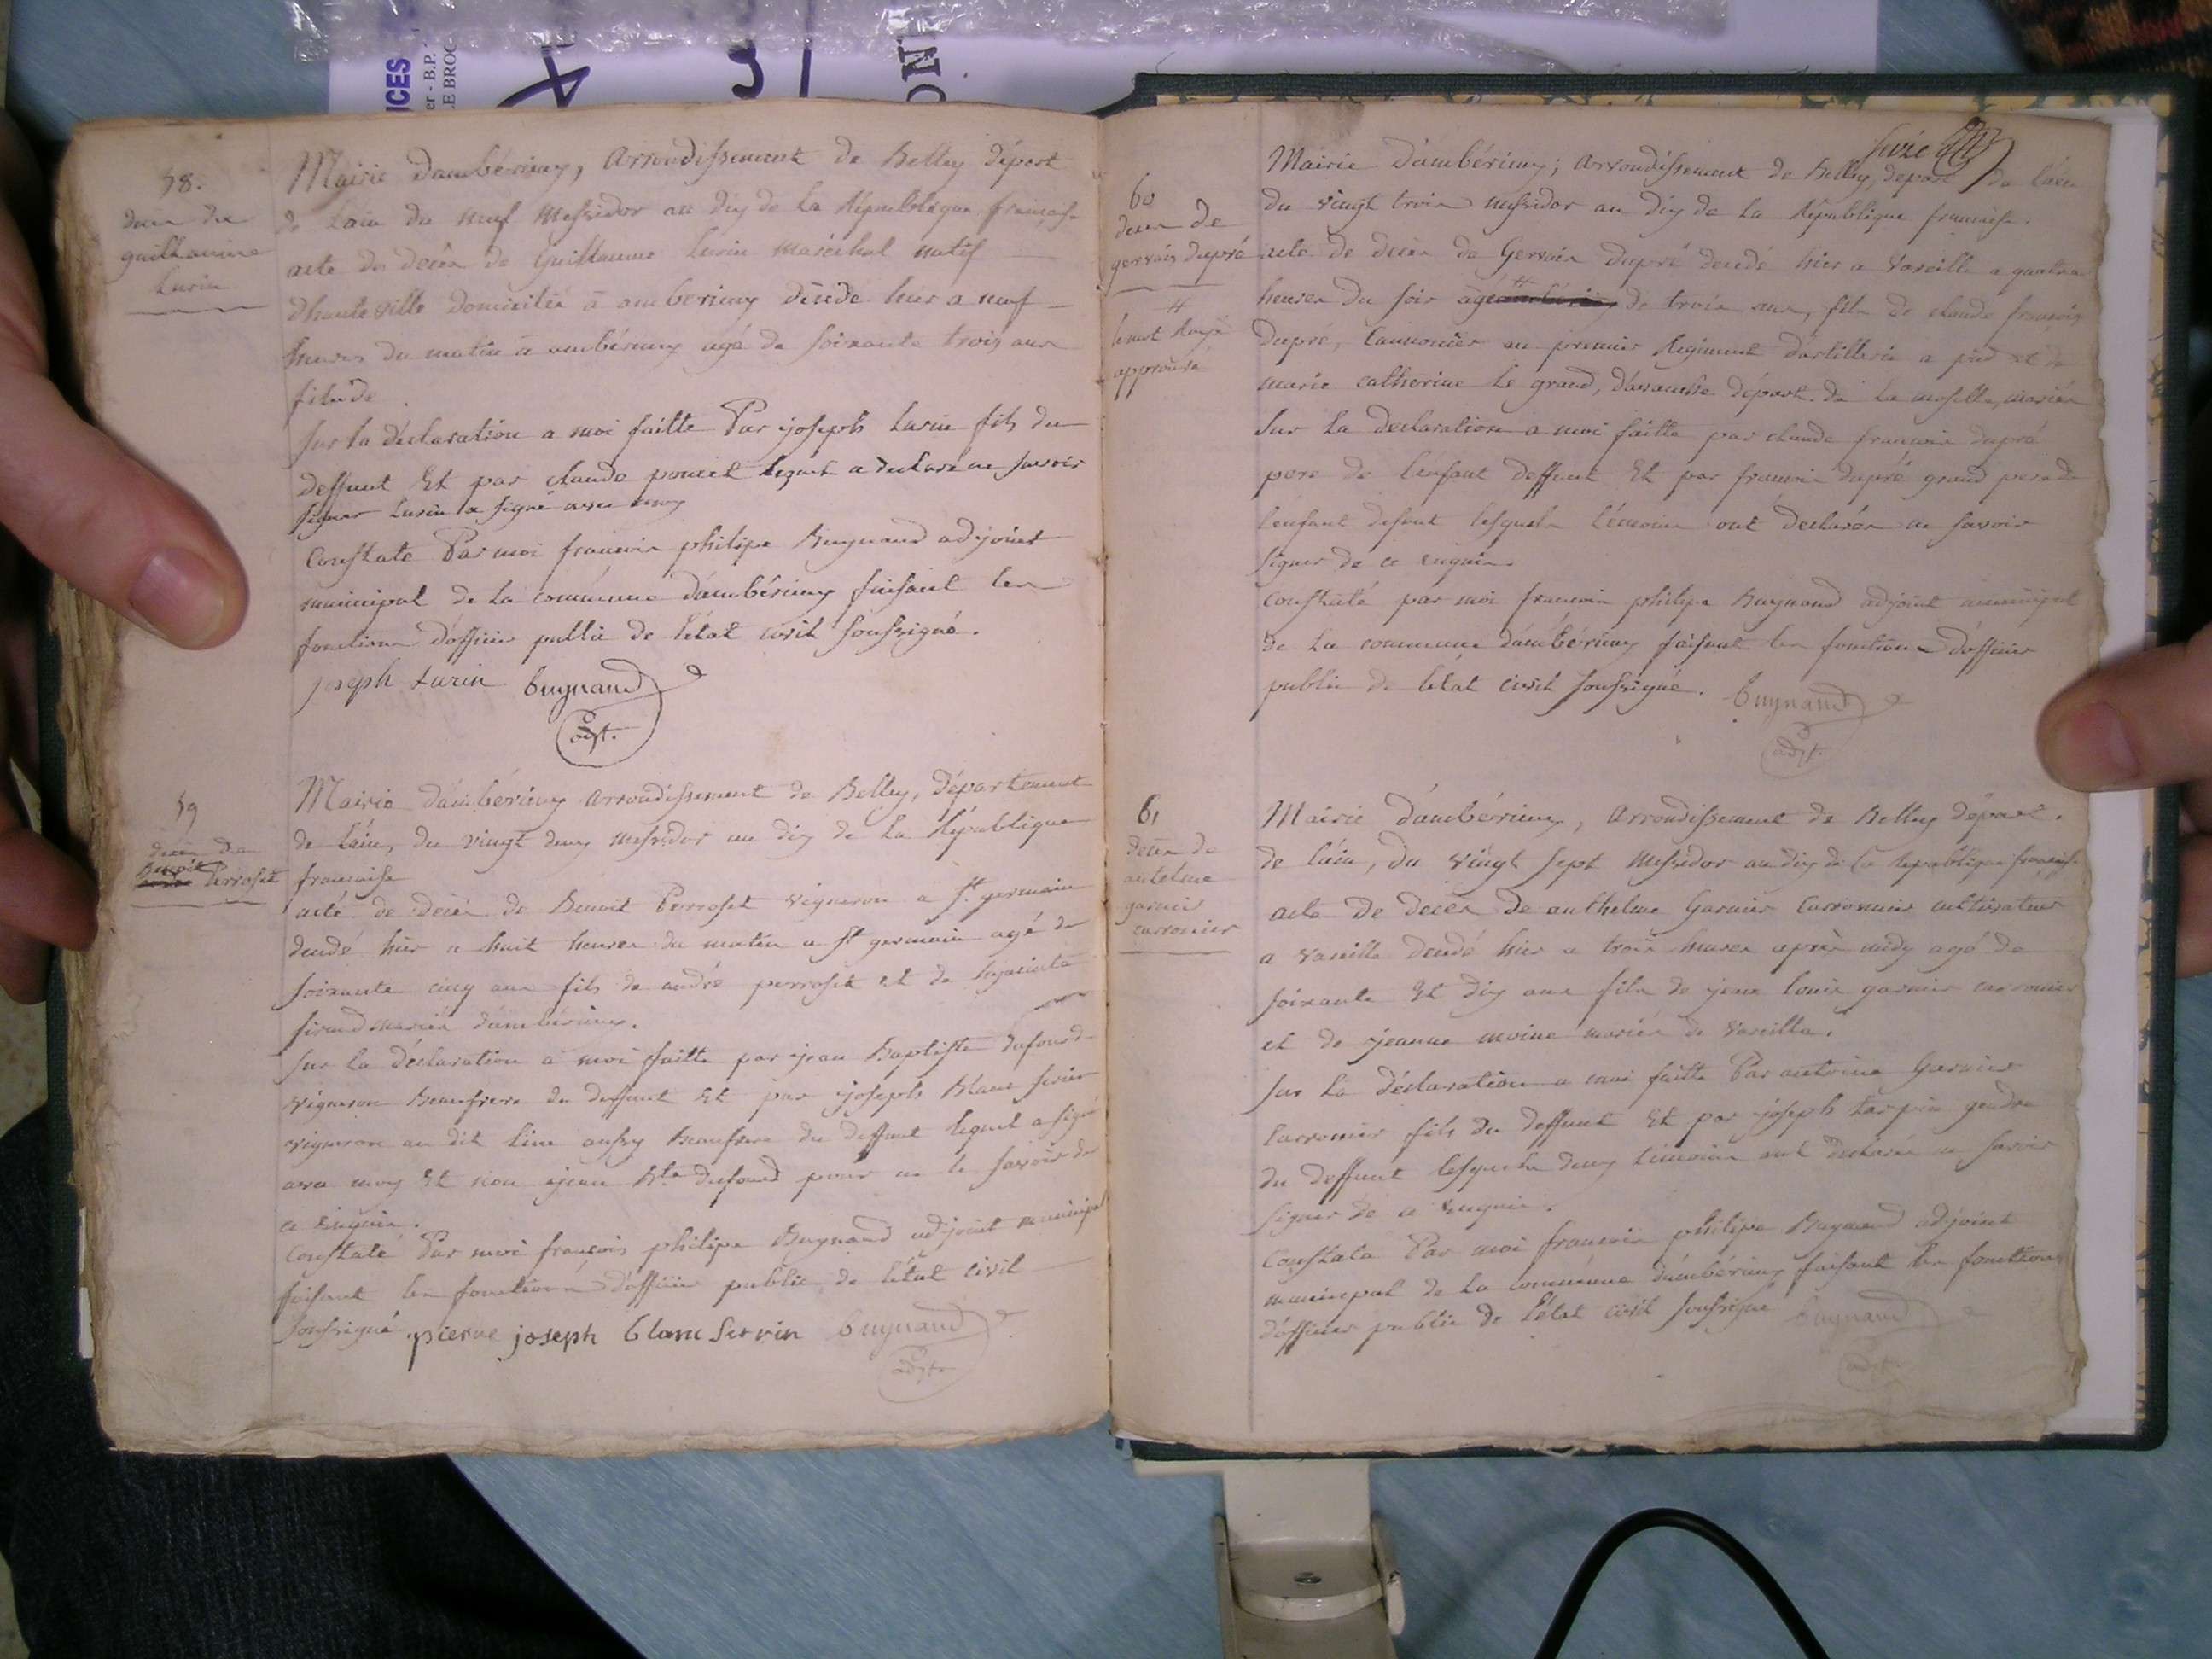 ICES
er - B.P.
E BROC
58.
deces de
guilhaume
Lurin
Mairie d'ambérieux, arrondissement de Belley dépert
de l'ain du neuf Messidor an dix de la République française
acte de decès de Guillaume Lurin maréchal natif
d'hauteville domicilié a amberieux décédé hier a neuf
heures du matin a ambérieux agé de soixante trois ans
fils de
sur la déclaration a moi faitte Par joseph Lurin fils du
deffunt Et par claude poncet lequel a declaré ne savoir
signer Lurin a signé avec moy
Constaté Par moi francois philipe Buynand adjoint
municipal de la commune d'ambérieux faisant les
fonctions d'officier public de l'état civil soussigné.
joseph Lurin buynand
adjt.
59
decès de
Benoit Perroset
Mairie d'ambérieux arrondissement de Belley, département
de l'ain, du vingt deux messidor an dix de la République
francaise
acte de decès de Benoit Perroset vigneron a St. germain
decedé hier a huit heures du matin a St germain agé de
soixante cinq ans fils de andré perroset et de hyacinte
mariés d'ambérieux.
sur la déclaration a moi faitte par jean Baptiste dufourd
vigneron Beaufrere du deffunt Et par joseph Blanc
vigneron au dit lieu aussy Beaufrere du deffunt lequel a signé
avec moy Et non jean Bte. dufourd pour ne le savoir de
ce enquis.
Constaté Par moi françois philipe Buynand adjoint municipal
faisant les fonctions d'officier public de l'état civil
soussigné pierre joseph blanc Servin buynand
adjt.
60
deces de
gervais dupré
#
le mot Rayé
approuvé
Mairie d'ambérieux; arrondissement de Belley, depart de l'ain
du vingt trois messidor an dix de la République francaise.
acte de decès de Gervais Dupré decedé hier a Vareille a quatre
heures du soir agé de trois ans, fils de claude françois
Dupré, Cannonier au premier Regiment d'artillerie a pied et de
marie catherine Le grand, départ. de la moselle, mariés
Sur la declaration a moi faitte par claude francois dupré
pere de l'enfant deffunt Et par francois dupré grand pere de
l'enfant defunt lesquels témoins ont declarés ne savoir
signer de ce enquis
constaté par moi francois philipe Buynand adjoint municipal
de la commune d'ambérieux faisant les fonctions d'officier
public de l'état civil soussigné. buynand
adjt.
61
decès de
antelme
garnier
carronier
Mairie d'ambérieux, arrondissement de Belley départ.
de l'ain, du vingt sept Messidor an dix de la République française
acte de decès de anthelme Garnier Carronnier cultivateur
a vareille decedé hier a trois heures après midy agé de
soixante Et dix ans fils de jean louis garnier carronier
et de jeanne moine mariés de vareille.
sur la déclaration a moi faitte Par antoine Garnier
Carronier fils du deffunt Et par joseph tarpin gendre
du deffunt lesquels deux témoins ont declaré ne savoir
signer de ce enquis.
Constaté Par moi francois philipe Buynand adjoint
municipal de la commune d'ambérieux faisant les fonctions
d'officier public de l'état civil soussigné buynand
adjt.